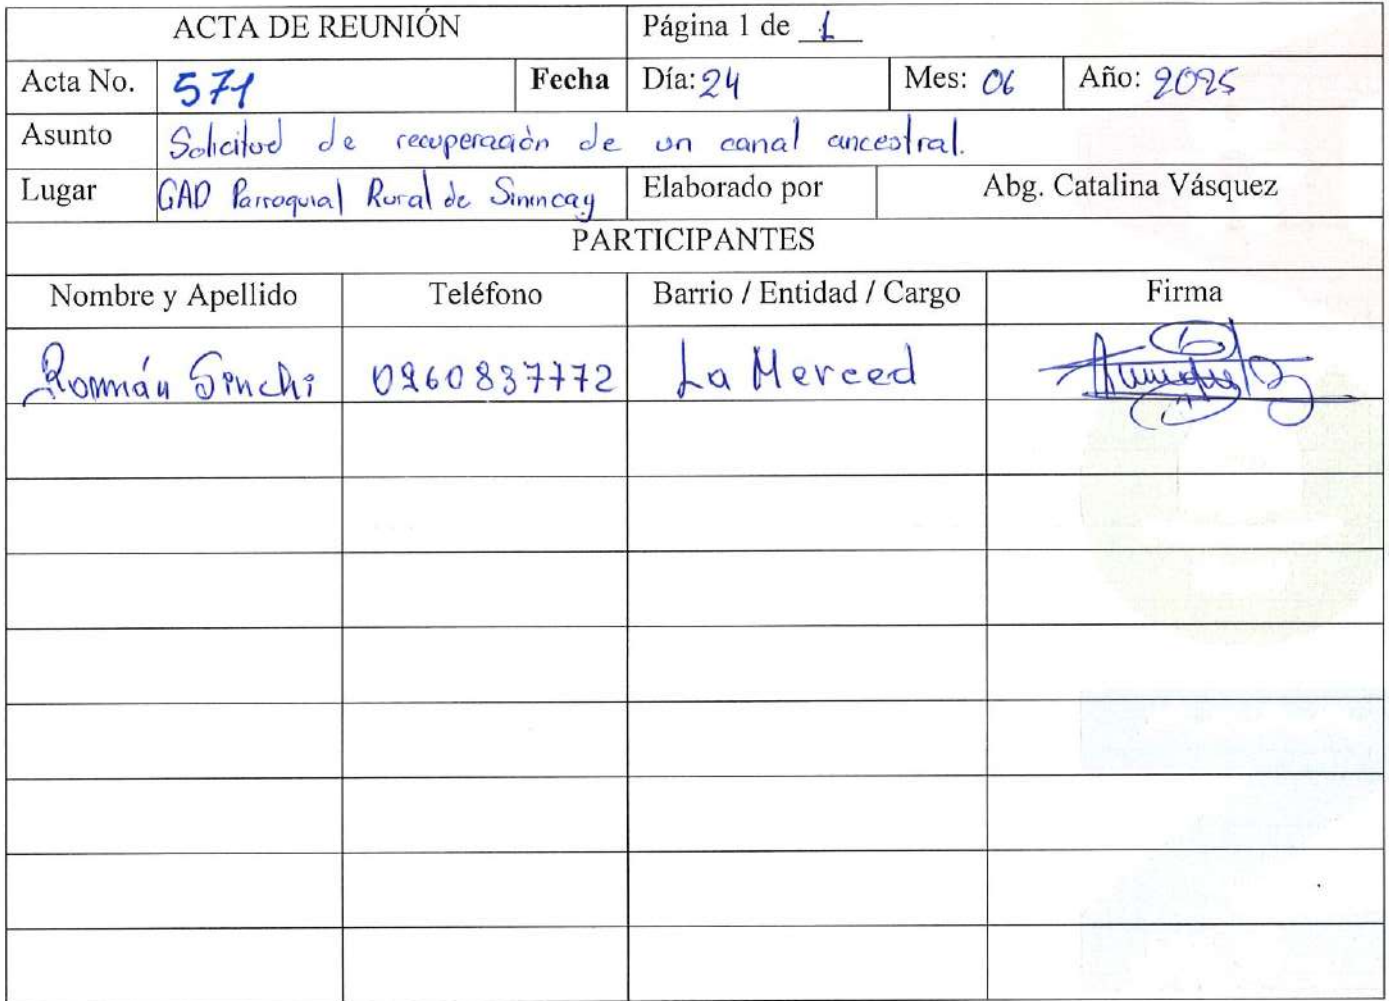 ACTA DE REUNIÓN Página 1 de 1
Acta No. 571 Fecha Día: 24 Mes: 06 Año: 2025
Asunto Solicitud de recuperación de un canal ancestral.
Lugar GAD Parroquial Rural de Sinincay Elaborado por Abg. Catalina Vásquez
PARTICIPANTES
Nombre y Apellido Teléfono Barrio / Entidad / Cargo Firma
Román Sinchi 0960837772 La Merced